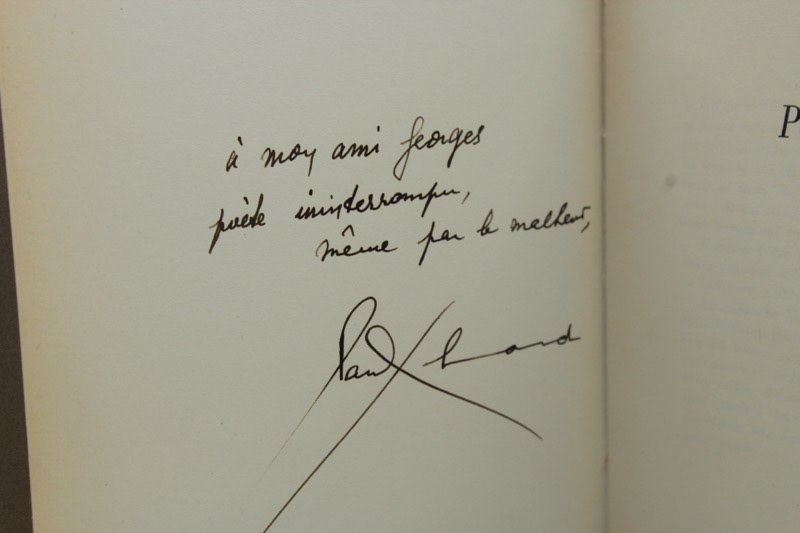 à mon ami Georges
poète ininterrompu,
même par le malheur,
Paul Eluard
P